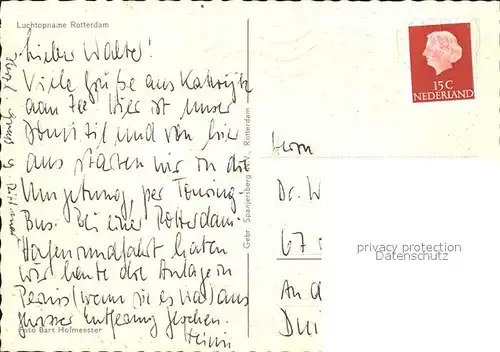 Luchtopname Rotterdam
Lieber Walter!
Viele Grüße aus Katwijk
aan Zee. Hier ist unser
Domizil und von hier
aus starten wir in die
Umgebung, per Touring-
Bus. Bei einer Rotterdam-
Hafenrundfahrt haben
wir heute die Anlage in
Pernis (wenn sie es war) aus
grosser Entfernung gesehen.
Foto Bart Hofmeester
Gebr. Spanjersberg N.V., Rotterdam
15 C
NEDERLAND
Herrn
Dr. W
67
An d
privacy protection
Datenschutz